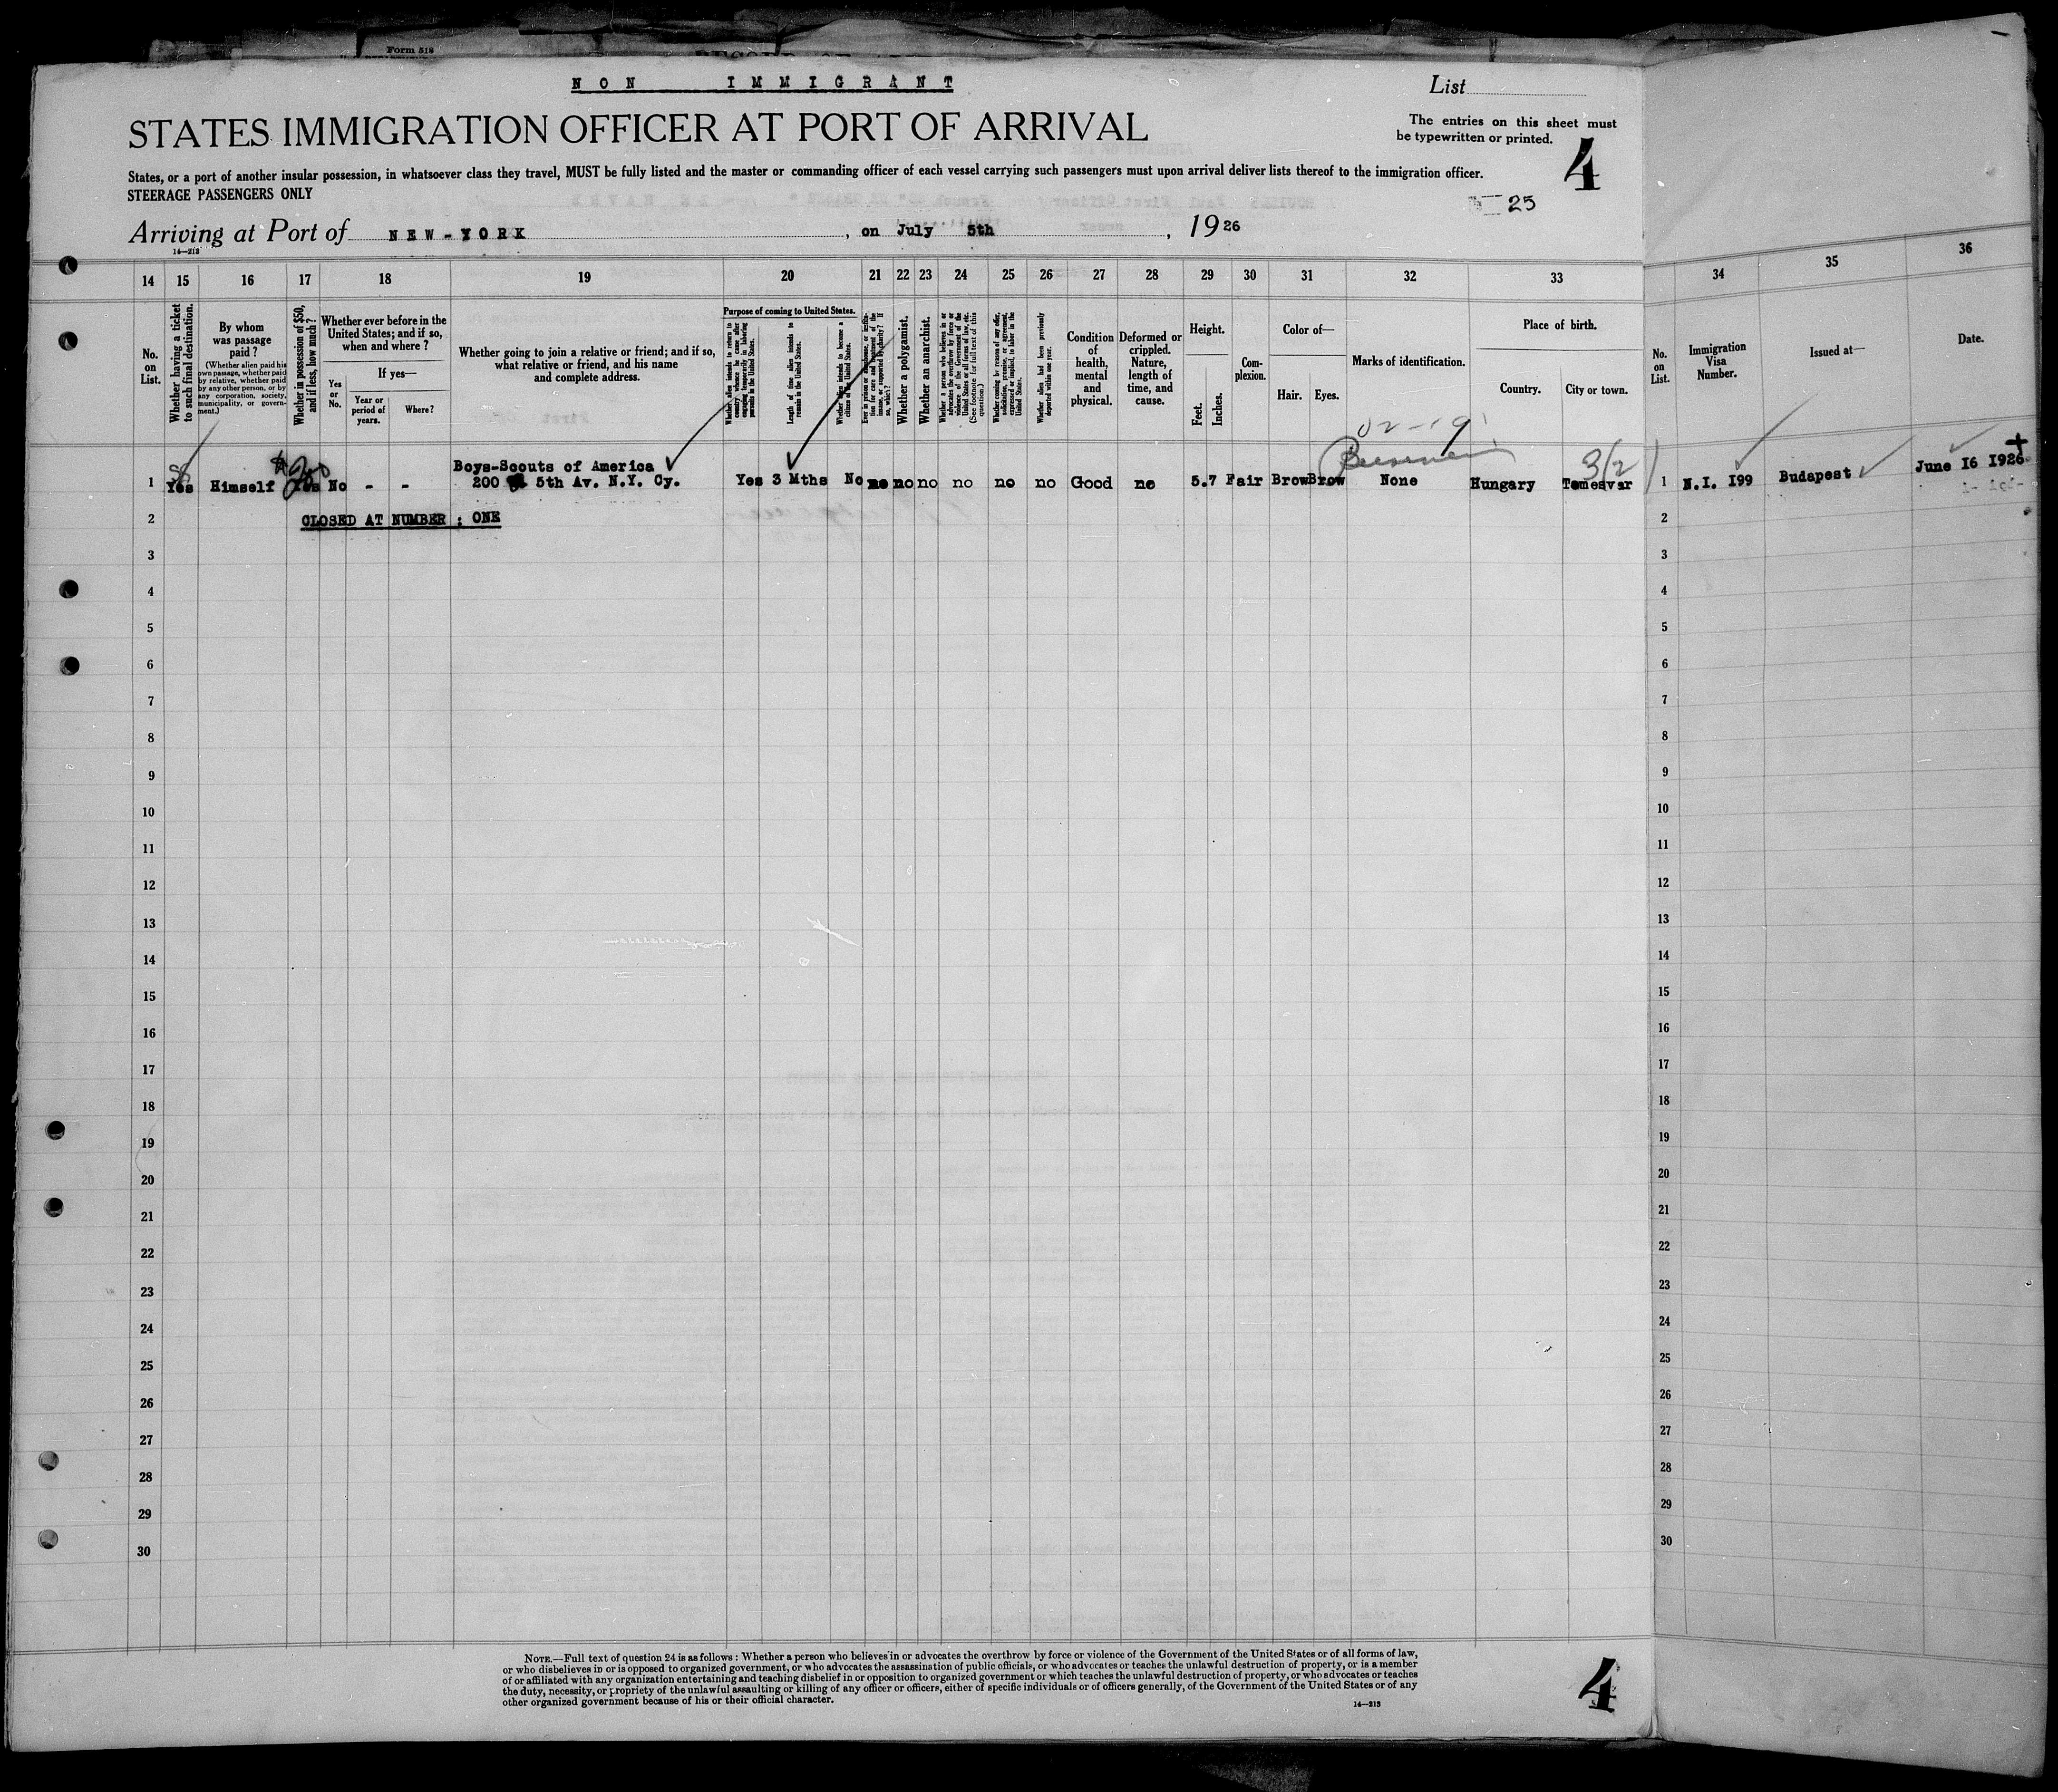 Form 518
NON IMMIGRANT
List
STATES IMMIGRATION OFFICER AT PORT OF ARRIVAL
The entries on this sheet must
be typewritten or printed.
4
States, or a port of another insular possession, in whatsoever class they travel, MUST be fully listed and the master or commanding officer of each vessel carrying such passengers must upon arrival deliver lists thereof to the immigration officer.
STEERAGE PASSENGERS ONLY
25
Arriving at Port of NEW-YORK, on July 5th, 1926
14—213
14 15 16 17 18 19 20 21 22 23 24 25 26 27 28 29 30 31 32 33 34 35 36
No. on List.
Whether having a ticket to such final destination.
By whom was passage paid?
(Whether alien paid his own passage, whether paid by relative, whether paid by any other person, or by any corporation, society, municipality, or government.)
Whether in possession of $50, and if less, how much?
Whether ever before in the United States; and if so, when and where?
Yes or No.
If yes—
Year or period of years.
Where?
Whether going to join a relative or friend; and if so, what relative or friend, and his name and complete address.
Purpose of coming to United States.
Length of time alien intends to remain in the United States.
Whether alien intends to become a citizen of the United States.
Whether a polygamist.
Whether an anarchist.
(See footnote for full text of this question.)
Whether alien had been previously deported within one year.
Condition of health, mental and physical.
Deformed or crippled. Nature, length of time, and cause.
Height.
Feet. Inches.
Complexion.
Color of—
Hair. Eyes.
Marks of identification.
Place of birth.
Country. City or town.
No. on List.
Immigration Visa Number.
Issued at—
Date.
02-191
3(2)
1 Yes Himself Yes No - - Boys-Scouts of America
200 5th Av. N.Y. Cy. Yes 3 Mths No no no no no no no Good no 5.7 Fair Brow Brow None Hungary Temesvar 1 N.I. I99 Budapest June I6 I926
2 CLOSED AT NUMBER : ONE 2
3 3
4 4
5 5
6 6
7 7
8 8
9 9
10 10
11 11
12 12
13 13
14 14
15 15
16 16
17 17
18 18
19 19
20 20
21 21
22 22
23 23
24 24
25 25
26 26
27 27
28 28
29 29
30 30
NOTE.—Full text of question 24 is as follows: Whether a person who believes in or advocates the overthrow by force or violence of the Government of the United States or of all forms of law,
or who disbelieves in or is opposed to organized government, or who advocates the assassination of public officials, or who advocates or teaches the unlawful destruction of property, or is a member
of or affiliated with any organization entertaining and teaching disbelief in or opposition to organized government or which teaches the unlawful destruction of property, or who advocates or teaches
the duty, necessity, or propriety of the unlawful assaulting or killing of any officer or officers, either of specific individuals or of officers generally, of the Government of the United States or of any
other organized government because of his or their official character.
14—213
4